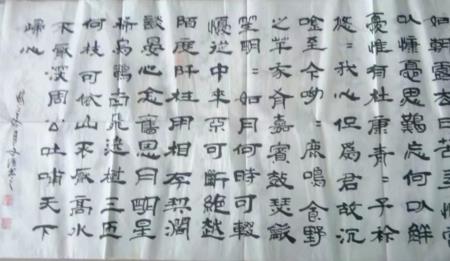 如朝露去日苦多慨當
以慷憂思難忘何以解
憂惟有杜康青=子衿
悠=我心但爲君故沉
唫至今呦=鹿鳴食野
之苹我有嘉賓鼓瑟龡
笙明=如月何時可輟
憂從中來不可斷絕越
陌度阡枉用相存契闊
談宴心念舊恩月明星
稀烏鵲南飛繞樹三匝
何枝可依山不厭高水
不厭深周公吐哺天下
歸心